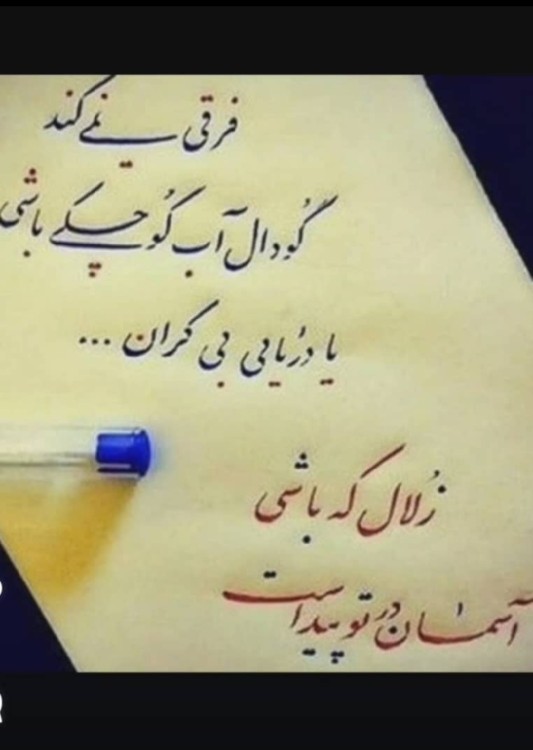 فرقی نمی‌کند
گودال آب کوچکی باشی
یا دریایی بی کران ...
زُلال که باشی
آسمان در تو پیداست